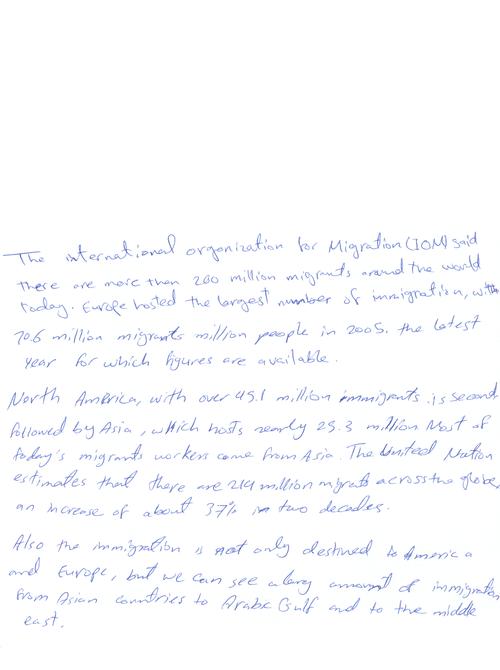 The international organization for Migration (IOM) said
there are more than 200 million migrants around the world
today. Europe hosted the largest number of immigration, with
70.6 million migrants million people in 2005. the latest
year for which figures are available.
North America, with over 45.1 million immigrants. is second
followed by Asia, which hosts nearly 25.3 million Most of
today's migrants workers come from Asia. The United Nation
estimates that there are 214 million migrats across the globe,
an increase of about 37% in two decades.
Also the immigration is not only destined to America
and Europe, but we can see a larg amount of immigration
from Asian countries to Arabic Gulf and to the middle
east.